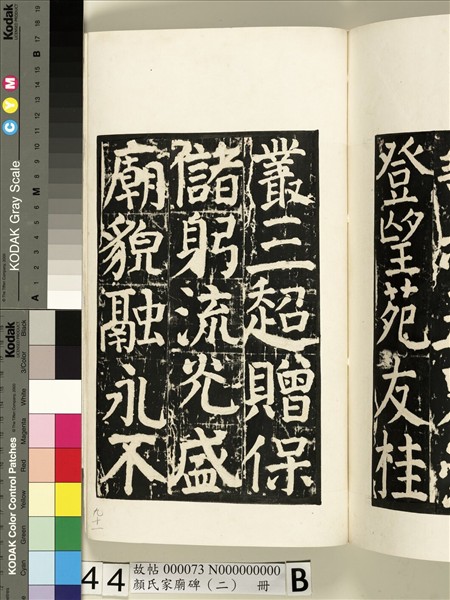 登望苑友桂
叢三超贈保
儲躬流光盛
廟貌融永不
Kodak
KODAK Gray Scale
C Y M
A 1 2 3 4 5 6 M 8 9 10 11 12 13 14 15 B 17 18 19
Kodak
KODAK Color Control Patches
Blue Cyan Green Yellow Red Magenta White 3/Color Black
44
故帖 000073 N000000000
顏氏家廟碑（二） 冊
B